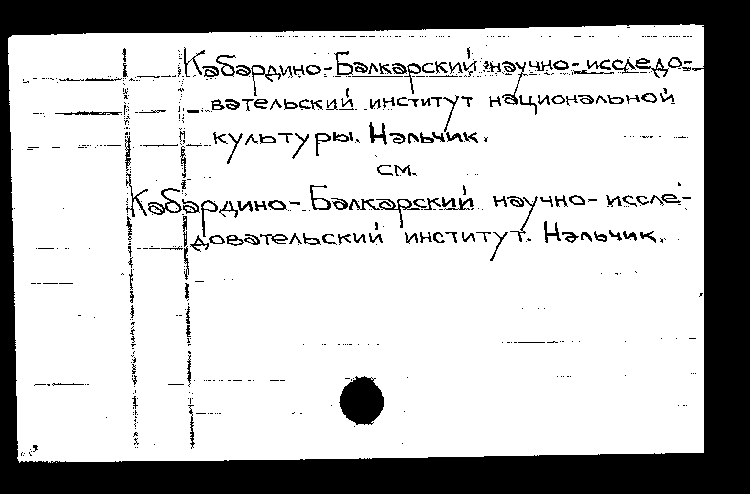 Кабардино-Балкарский научно-исследо-
вательский институт национальной
культуры. Нальчик.
см.
Кабардино-Балкарский научно-иссле-
довательский институт. Нальчик.